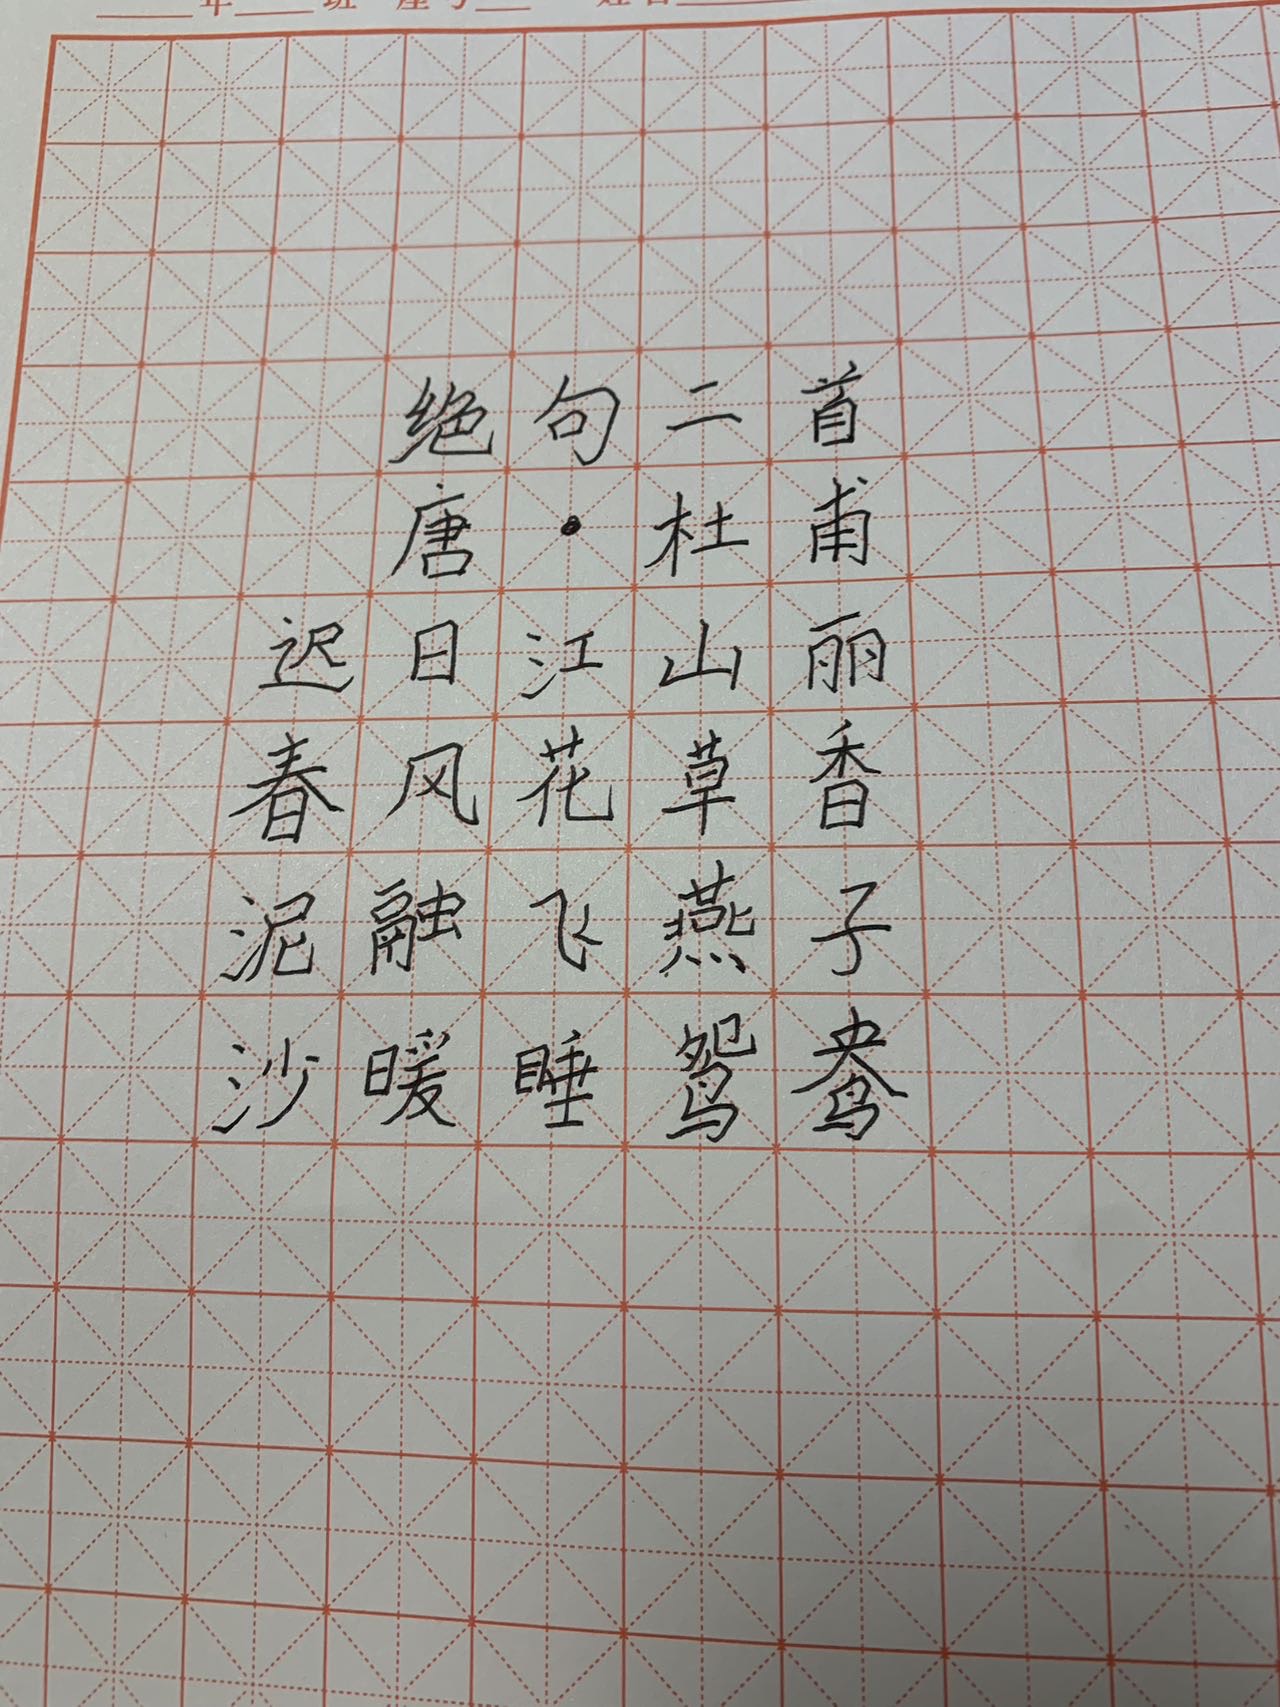 年 班 座号 姓名
绝句二首
唐·杜甫
迟日江山丽
春风花草香
泥融飞燕子
沙暖睡鸳鸯